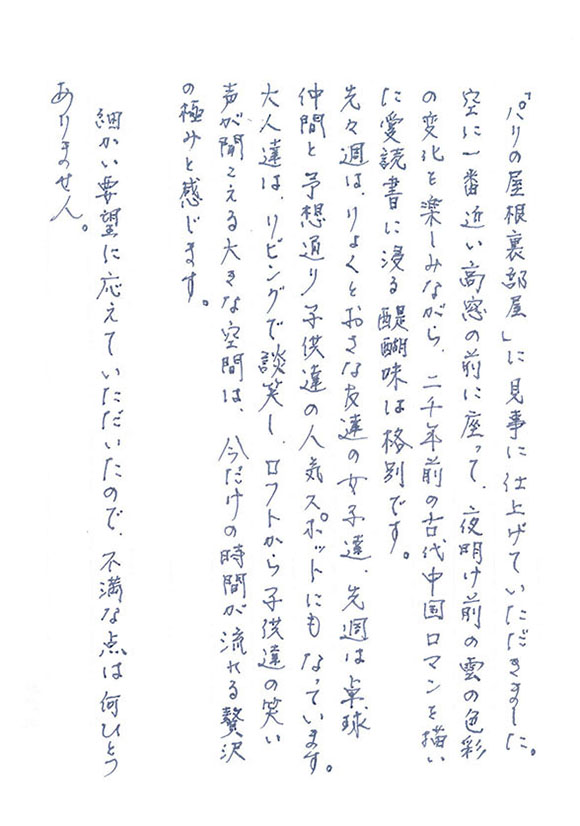 「パリの屋根裏部屋」に見事に仕上げていただきました。
空に一番近い高窓の前に座って、夜明け前の雲の色彩
の変化を楽しみながら、二千年前の古代中国ロマンを描い
に愛読書に浸る醍醐味は格別です。
先々週は、りょくとおさな友達の女子達、先週は卓球
仲間と予想通り子供達の人気スポットにもなっています。
大人達は、リビングで談笑し、ロフトから子供達の笑い
声が聞こえる大きな空間は、今だけの時間が流れる贅沢
の極みと感じます。
細かい要望に応えていただいたので、不満な点は何ひとつ
ありません。